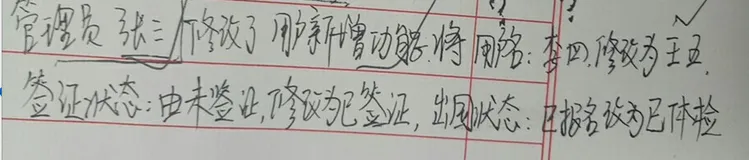 管理员 张三 修改了 用户新增功能.将 用户名: 李四,修改为王五,
签证状态:由未签证,修改为已签证,出国状态:已报名改为已体检